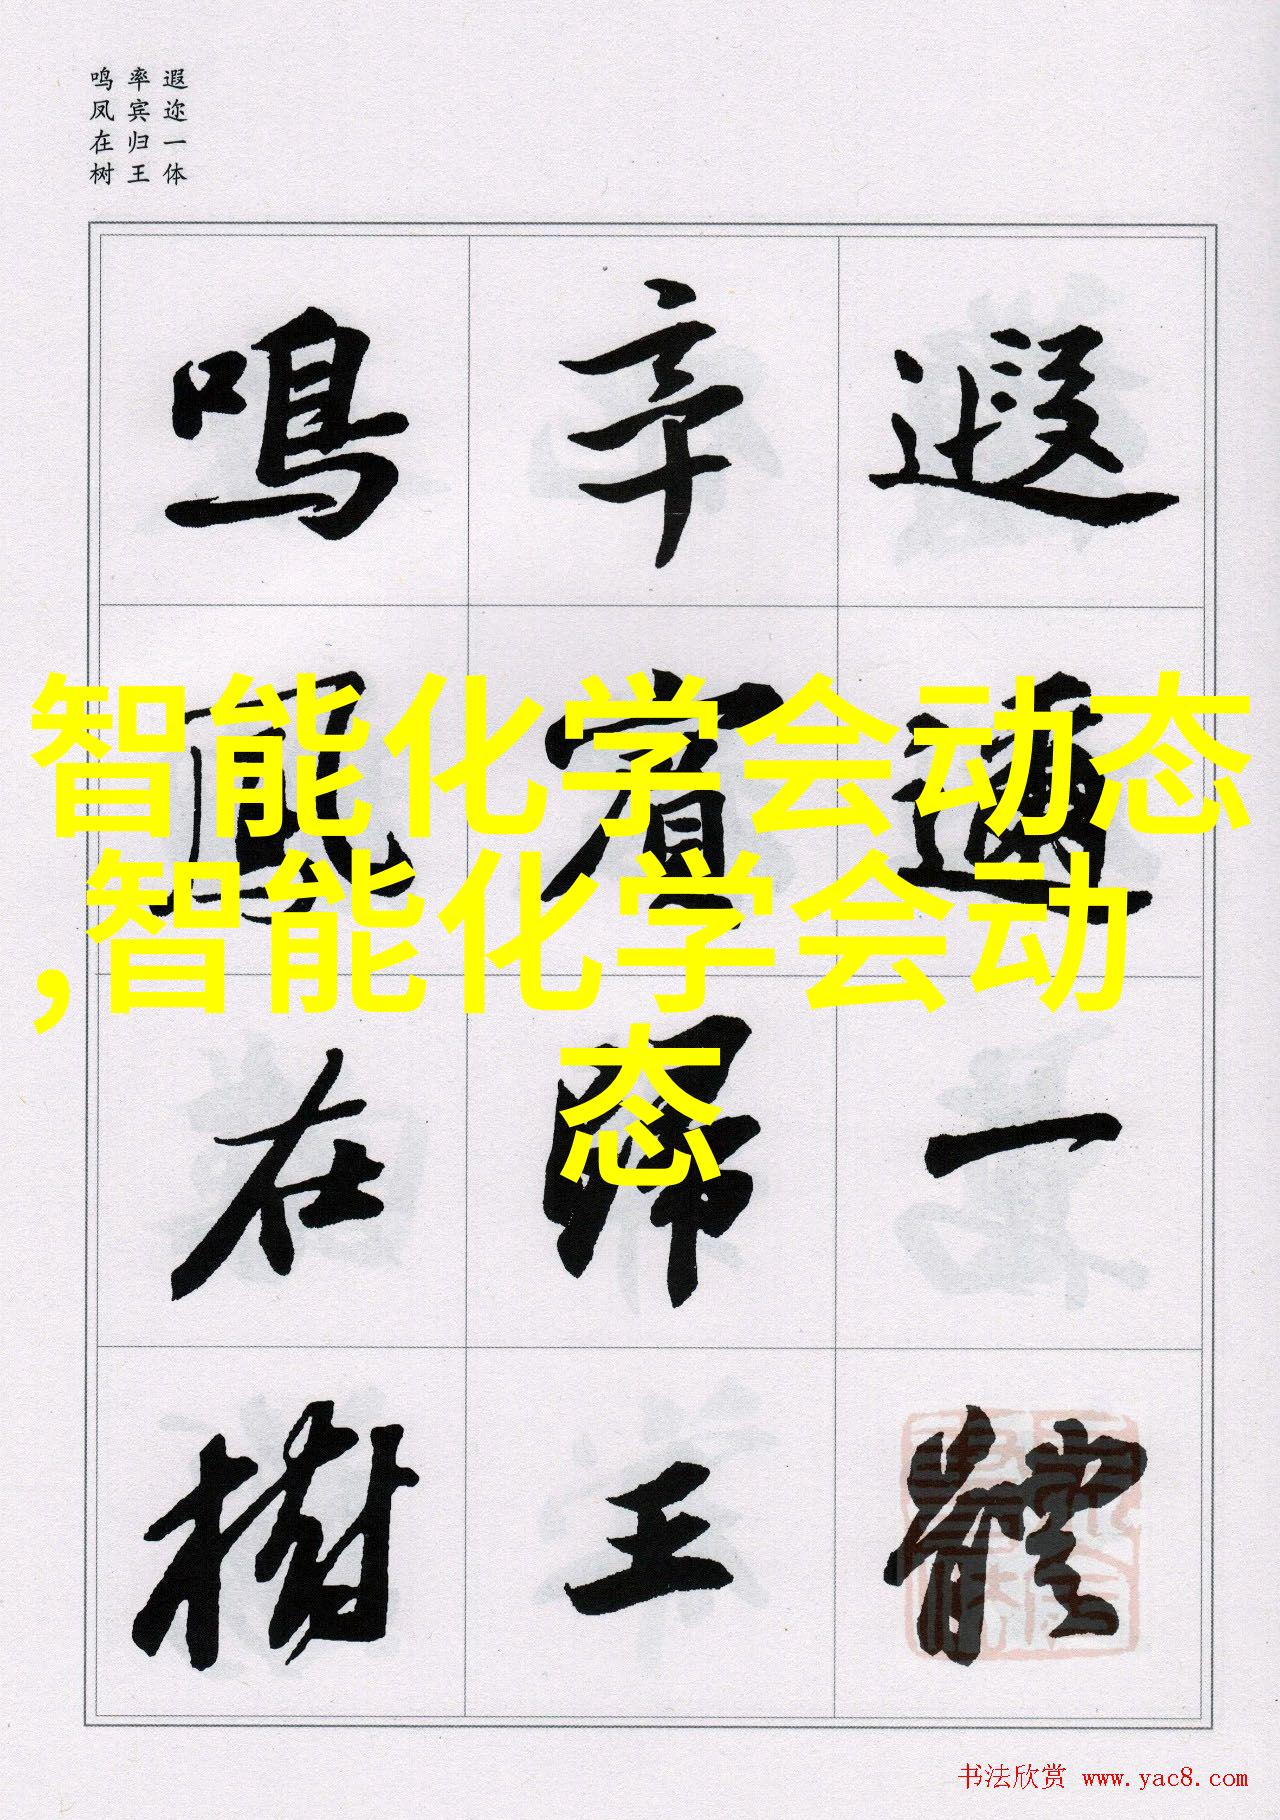 遐迩一体
率宾归王
鸣凤在树
遐邇一體
率賓歸王
鳴鳳在樹
智能化学会动态
,智能化学会动
态
书法欣赏 www.yac8.com